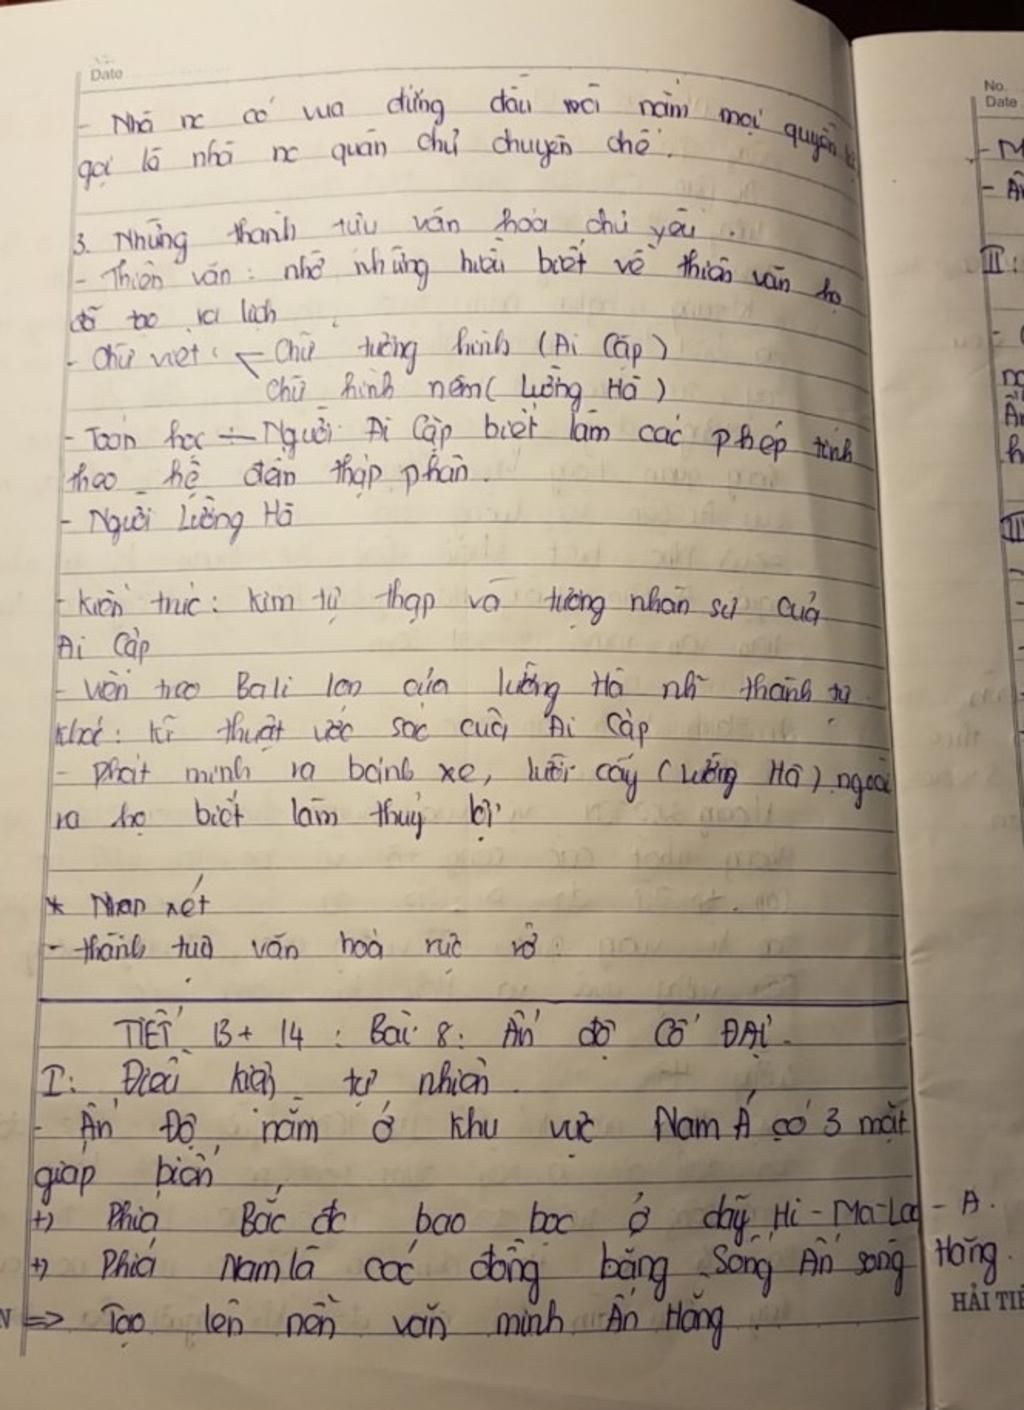 Date
- Nhà nc có vua đứng đầu nắm mọi quyền
gọi là nhà nc quân chủ chuyên chế.
3. Những thành tựu văn hóa chủ yếu.
- Thiên văn: nhờ những hiểu biết về thiên văn họ
đã tạo ra lịch
- Chữ viết: Chữ tượng hình (Ai Cập)
Chữ hình nêm (Lưỡng Hà)
- Toán học - Người Ai Cập biết làm các phép tính
theo hệ đếm thập phân.
- Người Lưỡng Hà
- Kiến trúc: Kim tự tháp và tượng nhân sư của
Ai Cập
- Vườn treo Babi lon của lưỡng Hà
khác: Kĩ thuật ướp xác của Ai Cập
- phát minh ra bánh xe, lưỡi cày (Lưỡng Hà) ngoài
ra họ biết làm thuỷ lợi
* Nhận xét
- thành tựu văn hoá rực rỡ.
TIẾT 13 + 14: Bài 8: ẤN ĐỘ CỔ ĐẠI.
I: Điều kiện tự nhiên.
- Ấn Độ nằm ở khu vực Nam Á có 3 mặt
giáp biển,
+) Phía Bắc đc bao bọc ở dãy Hi-Ma-Lay-A.
+) Phía Nam là các đồng bằng Sông Ấn sông Hằng.
=> Tạo lên nền văn minh Ấn Hằng
No.
Date
II:
HẢI TIẾ